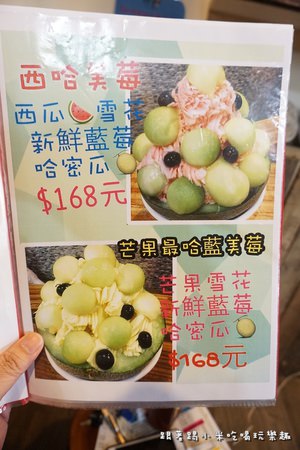 西哈美莓
西瓜🍉雪花
新鮮藍莓
哈密瓜
$168元
芒果最哈藍美莓
芒果雪花
新鮮藍莓
哈密瓜
$168元
跟著踢小米吃喝玩樂趣